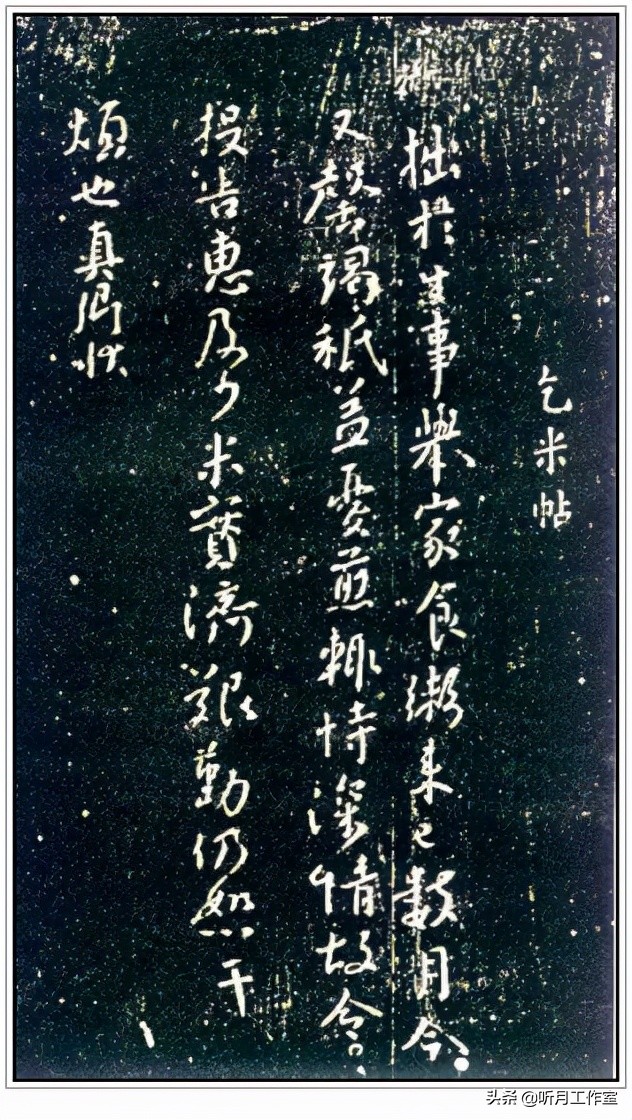 乞米帖
拙於生事舉家食粥來已數月今
又罄竭祗益憂煎輒恃深情故令
投告惠及少米實濟艱勤仍恕干
煩也真卿狀
头条 @听月工作室